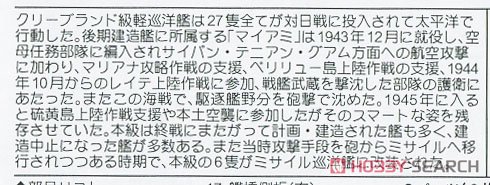 クリーブランド級軽巡洋艦は27隻全てが対日戦に投入されて太平洋で
行動した。後期建造艦に所属する「マイアミ」は1943年12月に就役し、空
母任務部隊に編入されサイパン・テニアン・グアム方面への航空攻撃
に加わり、マリアナ攻略作戦の支援、ペリリュー島上陸作戦の支援、1944
年10月からのレイテ上陸作戦に参加、戦艦武蔵を撃沈した部隊の護衛に
あたった。またこの海戦で、駆逐艦野分を砲撃で沈めた。1945年に入る
と硫黄島上陸作戦支援や本土空襲に参加したがそのスマートな姿を残
存させていた。本級は終戦にまたがって計画・建造された艦も多く、建
造中止になった艦が多数ある。また当時攻撃手段を砲からミサイルへ移
行されつつある時期で、本級の6隻がミサイル巡洋艦に
HOBBY SEARCH